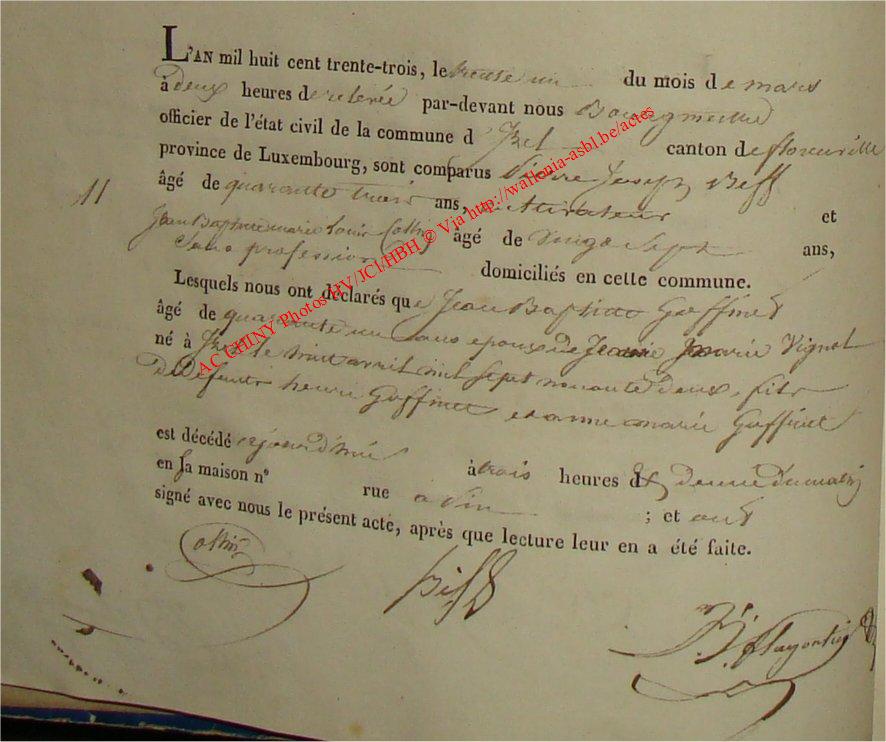 L'AN mil huit cent trente-trois, le trente un du mois de mars
à deux heures de relevée par-devant nous Bourgmestre
officier de l'état civil de la commune d'Izel canton de florenville
province de Luxembourg, sont comparus Pierre Joseph Biff
11
âgé de quarante trois ans, cultivateur et
Jean Baptiste marie louis Collin âgé de vingt sept ans,
Sans profession domiciliés en cette commune.
Lesquels nous ont déclarés que Jean Baptiste Goffinet
âgé de quarante un ans epoux de Jeanne marie Vignol
né à Izel le huit avril mil sept nonante deux, fils
De Defunts henri Goffinet et anne marie Goffinet
est décédé cejourd'hui à trois heures et demie du matin
en sa maison n° rue a Pin ; et ont
signé avec nous le présent acte, après que lecture leur en a été faite.
Collin
Biff
AC CHINY Photos HV/JCI/HBH © Via http://wallonia-asbl.be/actes